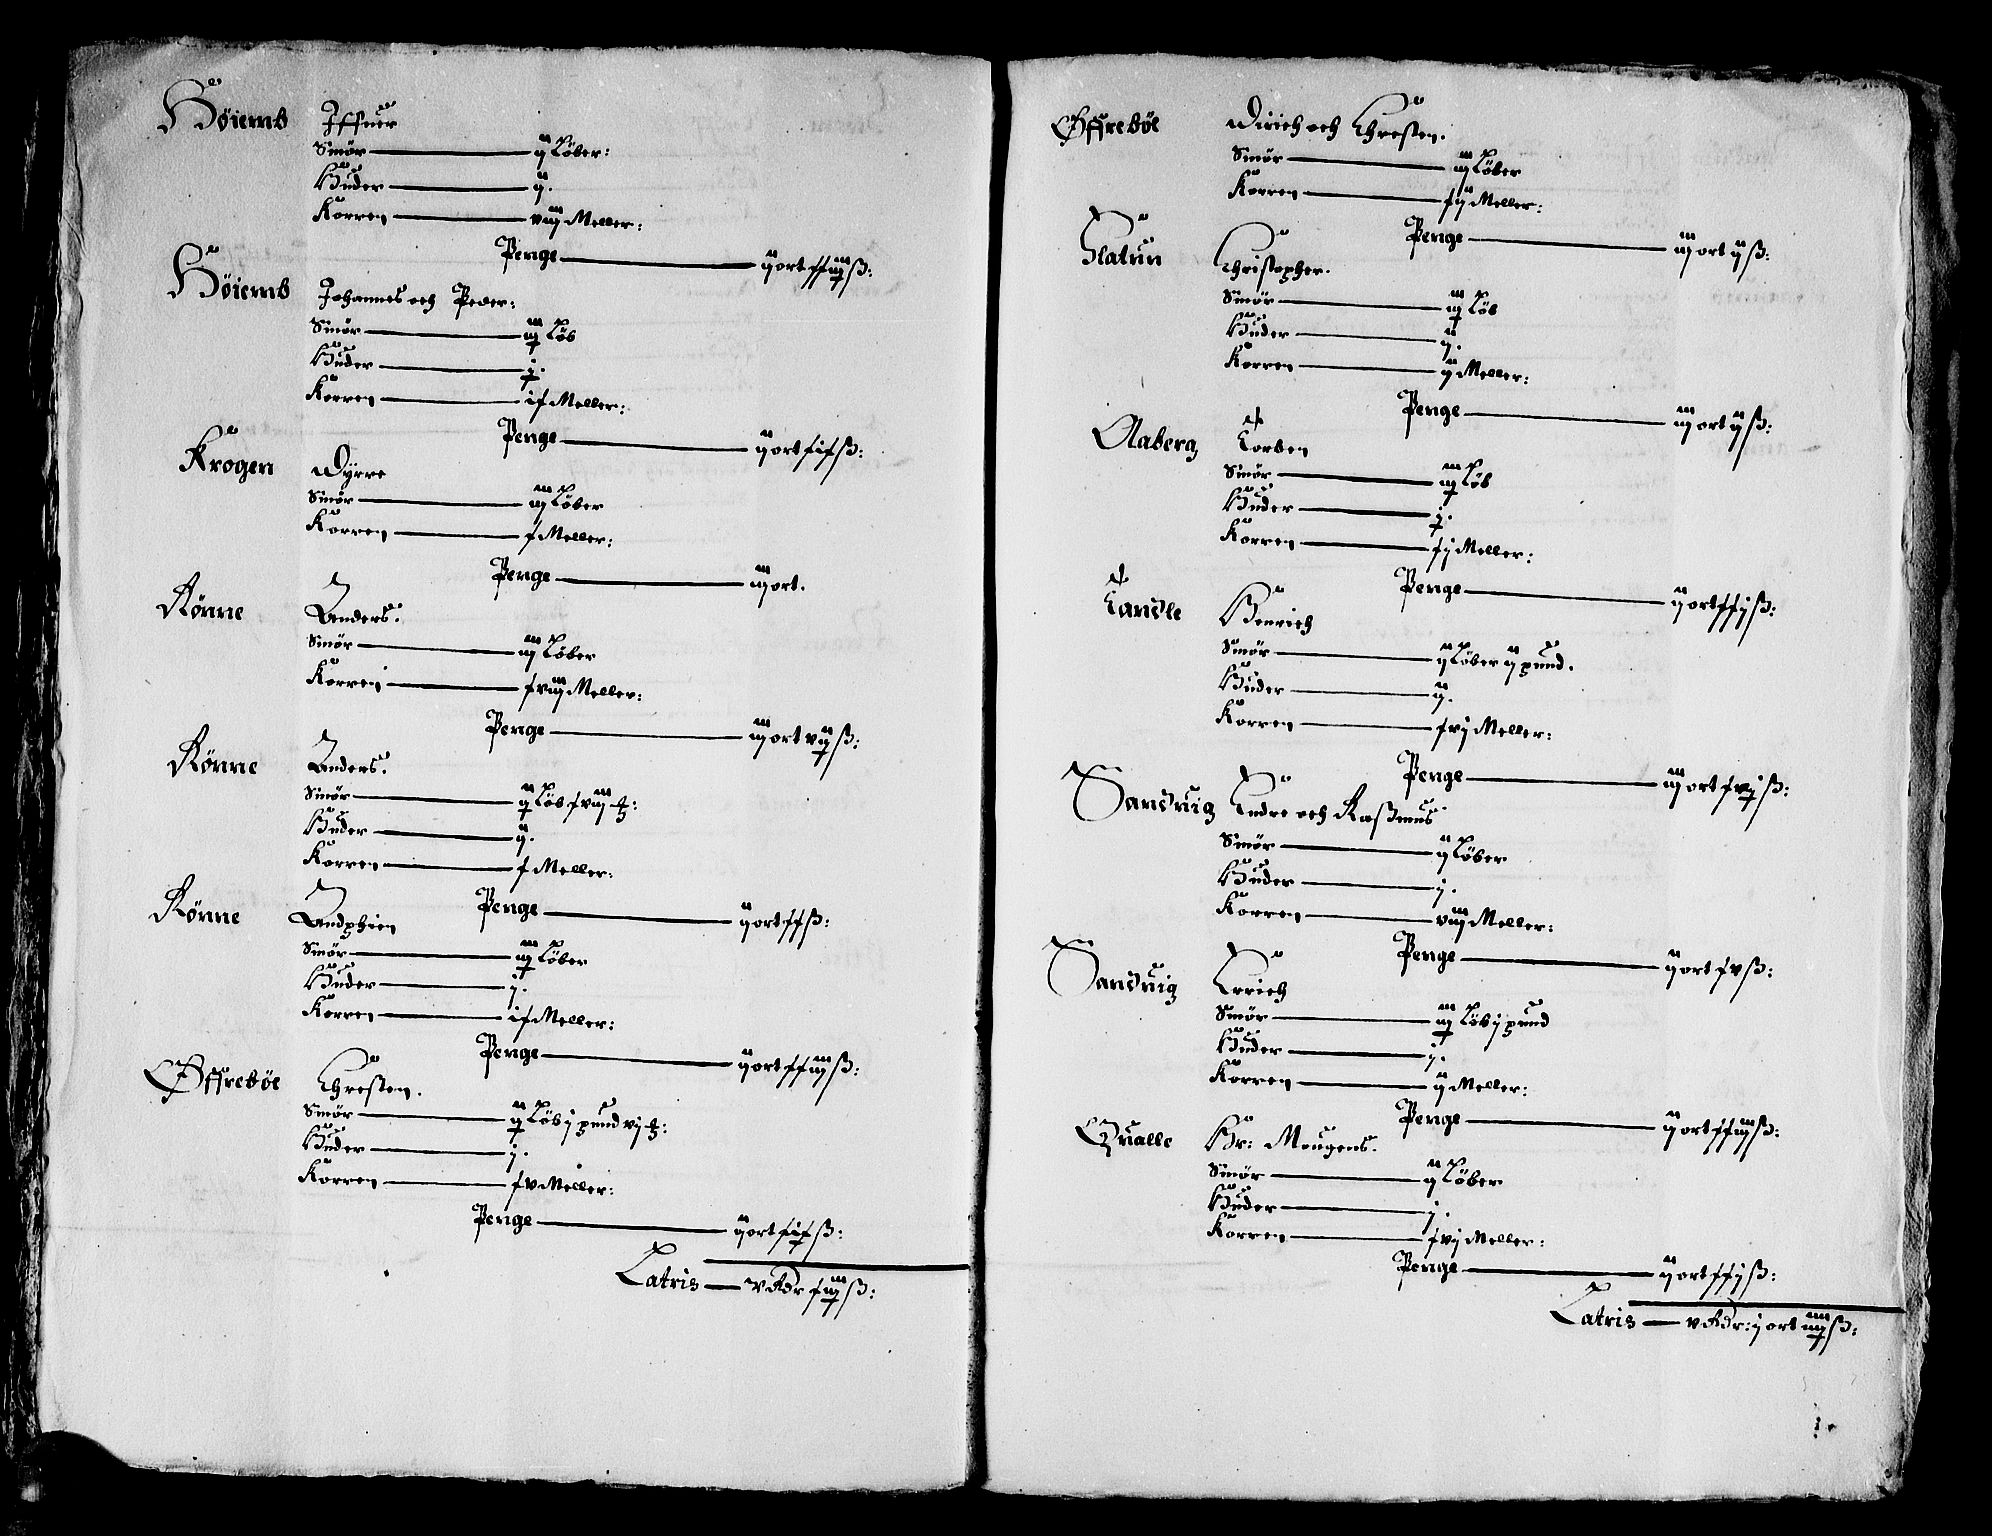 Høiemb Iffuer
Smør — ij Løber:
Huder — ij.
Korren — viij Meller:
Penge — ij ort xxiiij ß:
Høiemb Johannes och Peder:
Smør — iij Løb
Huder — j.
Korren — ix Meller:
Penge — ij ort xix ß:
Krogen Dyrre
Smør — iij Løber
Korren — x Meller:
Penge — iij ort.
Rønne Anders.
Smør — iij Løber
Korren — xviij Meller:
Penge — iij ort vij ß:
Rønne Anders.
Smør — ij Løb xviij
Huder — ij.
Korren — x Meller:
Penge — ij ort xx ß:
Rønne Andphien
Smør — iij Løber
Huder — j.
Korren — ix Meller:
Penge — ij ort xxiij ß:
Øffrebøe Chresten.
Smør — ij Løb j pund vj
Huder — j.
Korren — xv Meller:
Penge — ij ort xix ß:
Latris — v Rdr xiij ß:
Øffrebøe Dirich och Chresten.
Smør — iij Løber
Korren — xij Meller:
Penge — iij ort ij ß:
Slatun Christopher.
Smør — iij Løb
Huder — ij.
Korren — ij Meller:
Penge — iij ort ij ß:
Aaberg Torben
Smør — iij Løb
Huder — j.
Korren — xj Meller:
Penge — ij ort xxj ß:
Tandle Henrich
Smør — ij Løber ij pund.
Huder — ij.
Korren — xvj Meller:
Penge — iij ort xvj ß:
Sanduig Endre och Raßmus
Smør — ij Løber
Huder — j.
Korren — viij Meller:
Penge — ij ort xv ß:
Sanduig Errich
Smør — iij Løb j pund
Huder — j.
Korren — ij Meller:
Penge — ij ort xxiij ß:
Qualle Hr: Mougens.
Smør — ij Løber
Huder — j.
Korren — xvj Meller:
Penge — ij ort xxj ß:
Latris — v Rdr: j ort iiij ß: